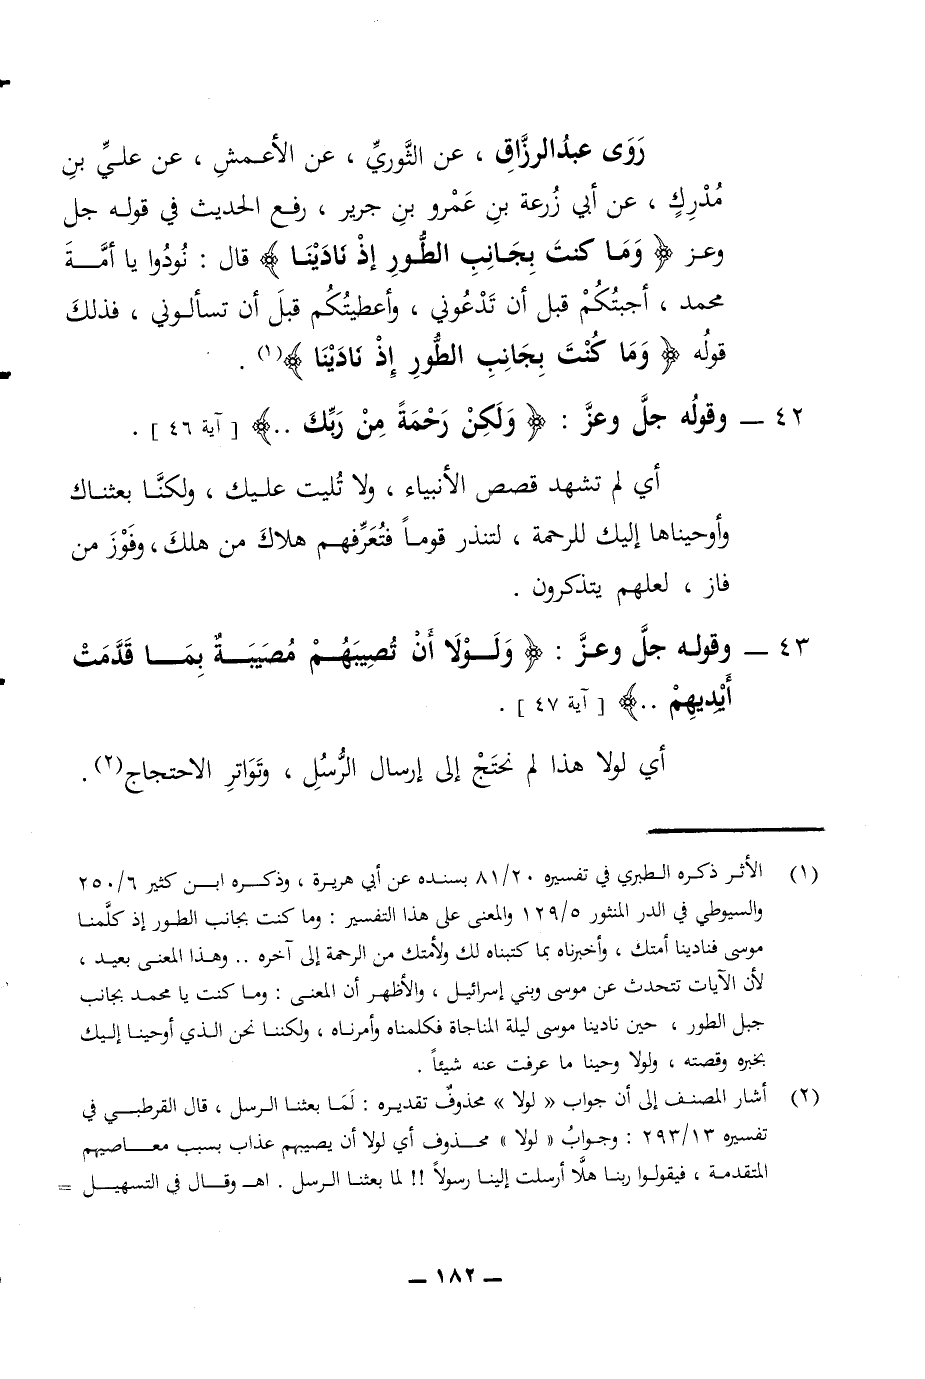 رَوَى عبدُالرزَّاقِ ، عن الثَّوريِّ ، عن الأعـمشِ ، عن عليِّ بنِ
مُدْركٍ ، عن أبي زُرعة بنِ عَمْرو بنِ جرير ، رفـع الحديث في قولـه جل
وعـز ﴿ وَمَا كنتَ بِجَانِبِ الطُّورِ إذْ نَادَيْنَـا ﴾ قال : نُودُوا يا أمَّـــةَ
محمد ، أجبتُكُمْ قبل أن تَدْعُوني ، وأعطيتُكُم قبلَ أن تسألـوني ، فذلك
قولُه ﴿ وَمَا كُنْتَ بِجَانِبِ الطُّورِ إِذْ نَادَيْنَا ﴾(١) .
٤٢ ــ وقولُه جلَّ وعزَّ : ﴿ وَلَكِنْ رَحْمَةً مِنْ رَبِّكَ ..﴾ [ آية ٤٦ ] .
أي لم تشهد قصص الأنبياء ، ولا تُليت عليك ، ولكنَّـا بعثنـاك
وأوحيناها إليك للرحمة ، لتنذر قومـاً فتُعَرِّفهـم هلاكَ من هلك ، وفَوْزَ من
فاز ، لعلهم يتذكرون .
٤٣ ــ وقولـه جلَّ وعـزَّ : ﴿ وَلَــوْلَا أَنْ تُصِيبَهُــمْ مُصِيَبَــةٌ بِمَـــا قَدَّمَتْ
أَيْدِيهِمْ ..﴾ [ آية ٤٧ ] .
أي لولا هذا لم نحتَجْ إلى إرسال الرُّسُلِ ، وتَوَاترِ الاحتجاج(٢) .
(١) الأثـر ذكـره الـطبري في تفسيره ٨١/٢٠ بسنده عن أبي هريرة ، وذكـــره ابـــن كثير ٢٥٠/٦
والسيوطي في الدر المنثور ١٢٩/٥ والمعنى على هذا التفسير : وما كنت بجانب الطور إذ كلَّمنـا
موسى فنادينا أمتك ، وأخبرناه بما كتبناه لك ولأمتك من الرحمة إلى آخره .. وهـذا المعنـى بعيـد ،
لأن الآيات تتحدث عن موسى وبني إسرائيـل ، والأظهـر أن المعنـى : ومـا كنت يا محمـد بجانب
جبل الطور ، حين نادينا موسى ليلة المناجاة فكلمناه وأمرنـاه ، ولكننـا نحن الـذي أوحينـا إلـيك
بخبره وقصته ، ولولا وحينا ما عرفت عنه شيئاً .
(٢) أشار المصنـف إلى أن جواب « لولا » محذوفٌ تقديـره : لَمَـا بعثنـا الـرسل ، قال القرطبـــي في
تفسيره ٢٩٣/١٣ : وجـوابُ « لولا » محـذوف أي لولا أن يصيبهم عذاب بسبب معـــاصيهم
المتقدمـة ، فيقولـوا ربنـا هلَّا أرسلت إلينـا رسولاً !! لما بعثنـا الـرسل . اهـ وقـــال في التسهيـل =
ــ ١٨٢ ــ